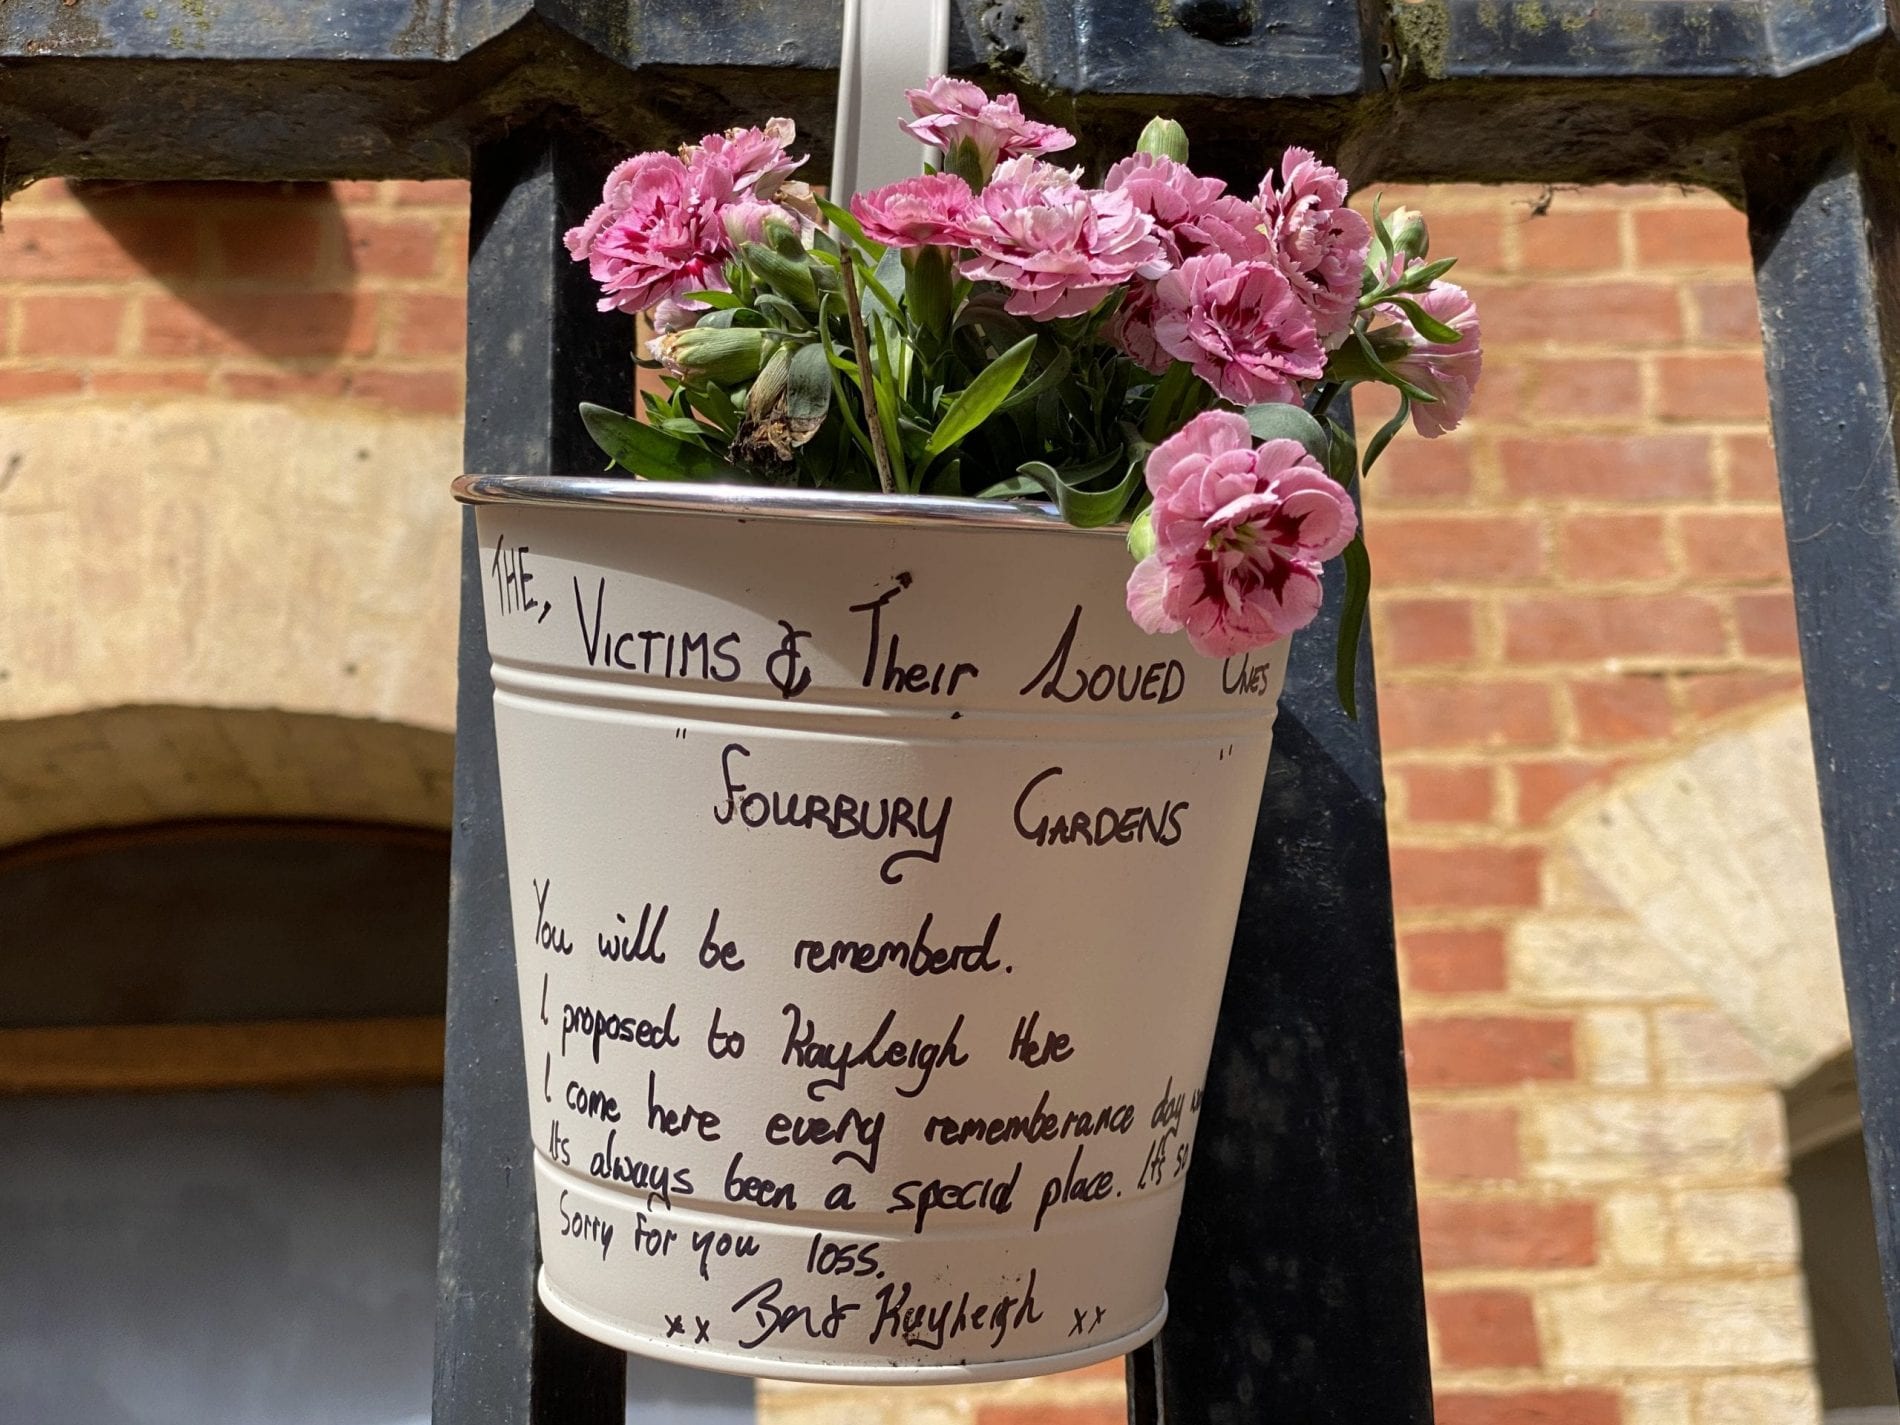 THE, VICTIMS & Their LOVED ONES
"FOURBURY GARDENS"
You will be rememberd.
I proposed to KayLeigh Here
I come here every rememberance day
Its always been a special place. It's so
Sorry for you loss.
xx Ben & Kayleigh xx